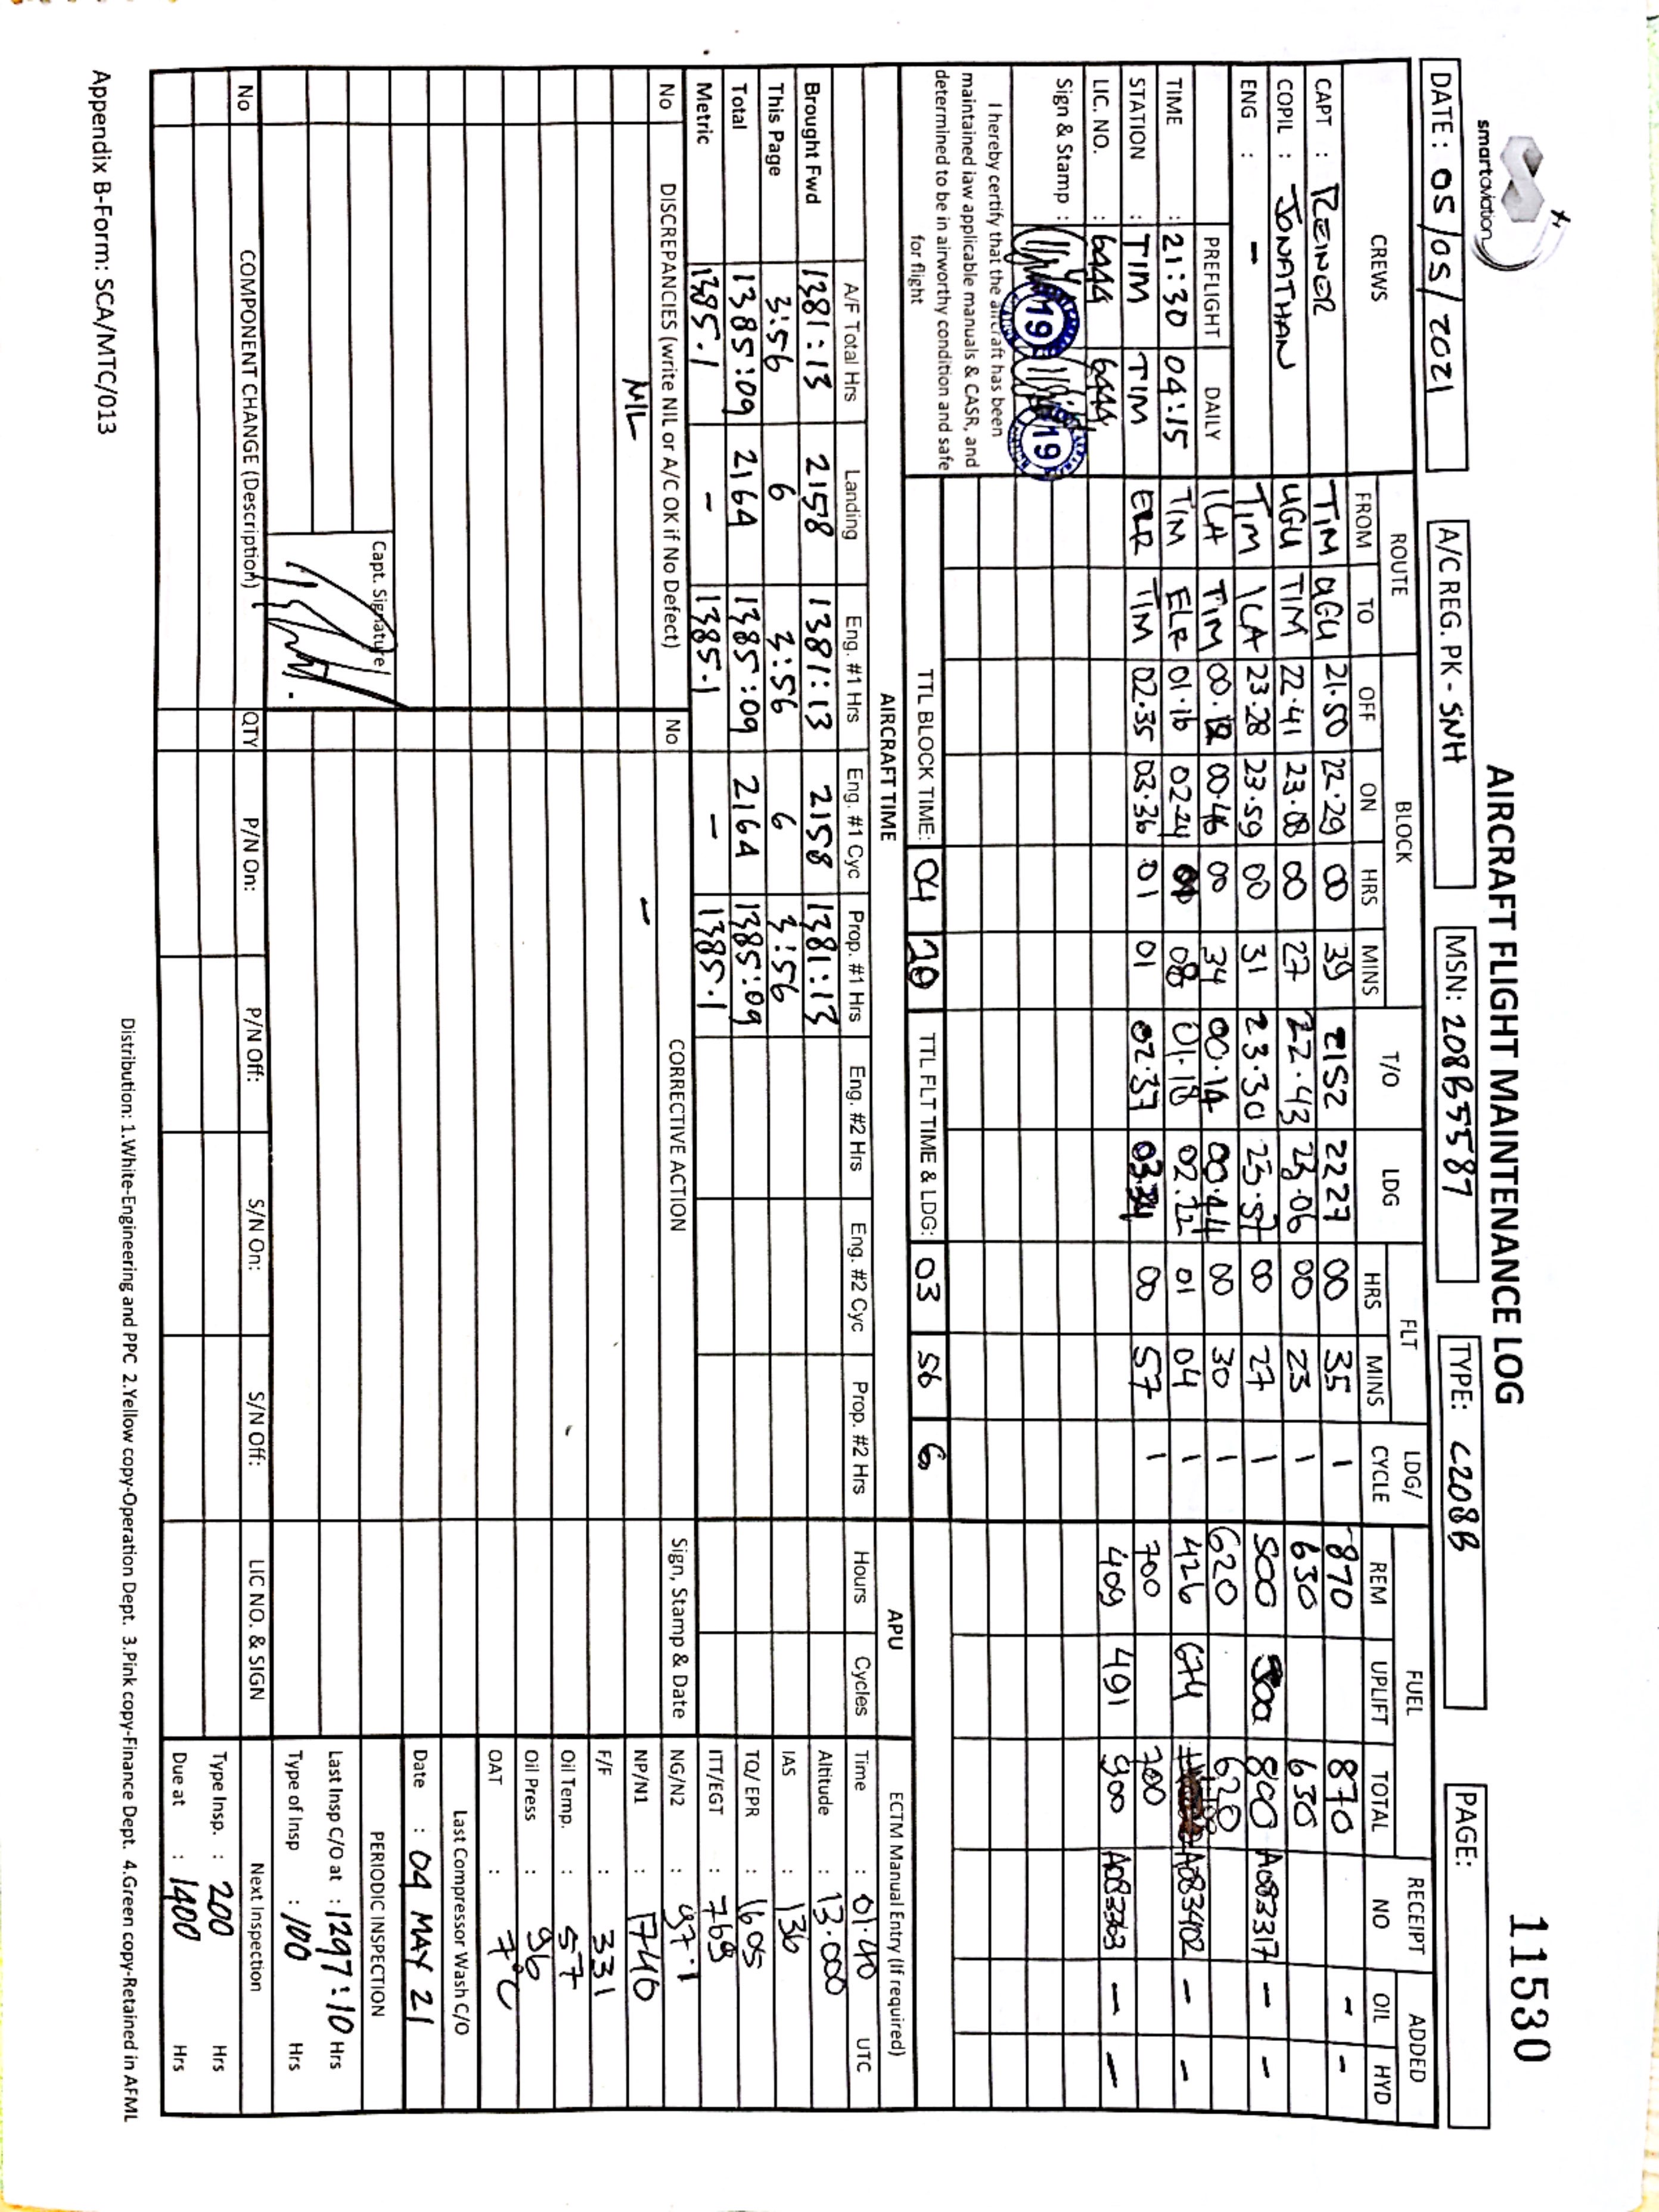 smartaviation
AIRCRAFT FLIGHT MAINTENANCE LOG
11530
DATE : 05/05/2021 A/C REG. PK - SNH MSN: 208B5587 TYPE: C208B PAGE:
CREWS ROUTE BLOCK T/O LDG FLT LDG/ CYCLE FUEL RECEIPT NO ADDED
FROM TO OFF ON HRS MINS HRS MINS REM UPLIFT TOTAL OIL HYD
CAPT : REINER TIM UGU 21.50 22.29 00 39 2152 2227 00 35 1 870 870 - -
COPIL : JONATHAN UGU TIM 22.41 23.08 00 27 22.43 23.06 00 23 1 630 630
ENG : - TIM ILA 23.28 23.59 00 31 23.30 23.57 00 27 1 500 300 800 A083317 - -
PREFLIGHT DAILY ILA TIM 00.12 00.46 00 34 00.14 00.44 00 30 1 620 620
TIME : 21:30 04:15 TIM ELR 01.16 02.24 01 08 01.18 02.22 01 04 1 426 674 A083402 - -
STATION : TIM TIM ELR TIM 02.35 03.36 01 01 02.37 03.34 00 57 1 700 700
LIC. NO. : 6444 6444 409 491 900 A083363 - -
Sign & Stamp : 19 19
I hereby certify that the aircraft has been
maintained iaw applicable manuals & CASR, and
determined to be in airworthy condition and safe
for flight
TTL BLOCK TIME: 04 20 TTL FLT TIME & LDG: 03 56 6
AIRCRAFT TIME APU ECTM Manual Entry (If required)
A/F Total Hrs Landing Eng. #1 Hrs Eng. #1 Cyc Prop. #1 Hrs Eng. #2 Hrs Eng. #2 Cyc Prop. #2 Hrs Hours Cycles Time : 01.40 UTC
Brought Fwd 1381:13 2158 1381:13 2158 1381:13 Altitude : 13.000
This Page 3:56 6 3:56 6 3:56 IAS : 136
Total 1385:09 2164 1385:09 2164 1385:09 TQ/ EPR : 1605
Metric 1385.1 - 1385.1 - 1385.1 ITT/EGT : 769
No DISCREPANCIES (write NIL or A/C OK if No Defect) No CORRECTIVE ACTION Sign, Stamp & Date NG/N2 : 97.1
NIL - NP/N1 : 1740
F/F : 331
Oil Temp. : 57
Oil Press : 96
OAT : 7°C
Last Compressor Wash C/O
Date : 04 MAY 21
Capt. Signature
PERIODIC INSPECTION
Last Insp C/O at : 1297:10 Hrs
Type of Insp : 100 Hrs
No COMPONENT CHANGE (Description) QTY P/N On: P/N Off: S/N On: S/N Off: LIC NO. & SIGN Next Inspection
Type Insp. : 200 Hrs
Due at : 1400 Hrs
Appendix B-Form: SCA/MTC/013
Distribution: 1.White-Engineering and PPC 2.Yellow copy-Operation Dept. 3.Pink copy-Finance Dept. 4.Green copy-Retained in AFML